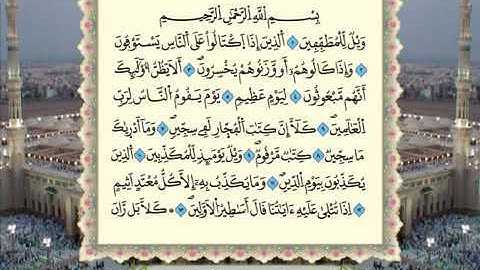 بِسْمِ اللَّهِ الرَّحْمَٰنِ الرَّحِيمِ
وَيْلٌ لِلْمُطَفِّفِينَ ۝١ الَّذِينَ إِذَا اكْتَالُوا عَلَى النَّاسِ يَسْتَوْفُونَ
۝٢ وَإِذَا كَالُوهُمْ أَوْ وَزَنُوهُمْ يُخْسِرُونَ ۝٣ أَلَا يَظُنُّ أُولَٰئِكَ
أَنَّهُمْ مَبْعُوثُونَ ۝٤ لِيَوْمٍ عَظِيمٍ ۝٥ يَوْمَ يَقُومُ النَّاسُ لِرَبِّ
الْعَالَمِينَ ۝٦ كَلَّا إِنَّ كِتَابَ الْفُجَّارِ لَفِي سِجِّينٍ ۝٧ وَمَا أَدْرَاكَ
مَا سِجِّينٌ ۝٨ كِتَابٌ مَرْقُومٌ ۝٩ وَيْلٌ يَوْمَئِذٍ لِلْمُكَذِّبِينَ ۝١٠ الَّذِينَ
يُكَذِّبُونَ بِيَوْمِ الدِّينِ ۝١١ وَمَا يُكَذِّبُ بِهِ إِلَّا كُلُّ مُعْتَدٍ أَثِيمٍ
۝١٢ إِذَا تُتْلَىٰ عَلَيْهِ ءَايَاتُنَا قَالَ أَسَاطِيرُ الْأَوَّلِينَ ۝١٣ كَلَّا بَلْ رَانَ